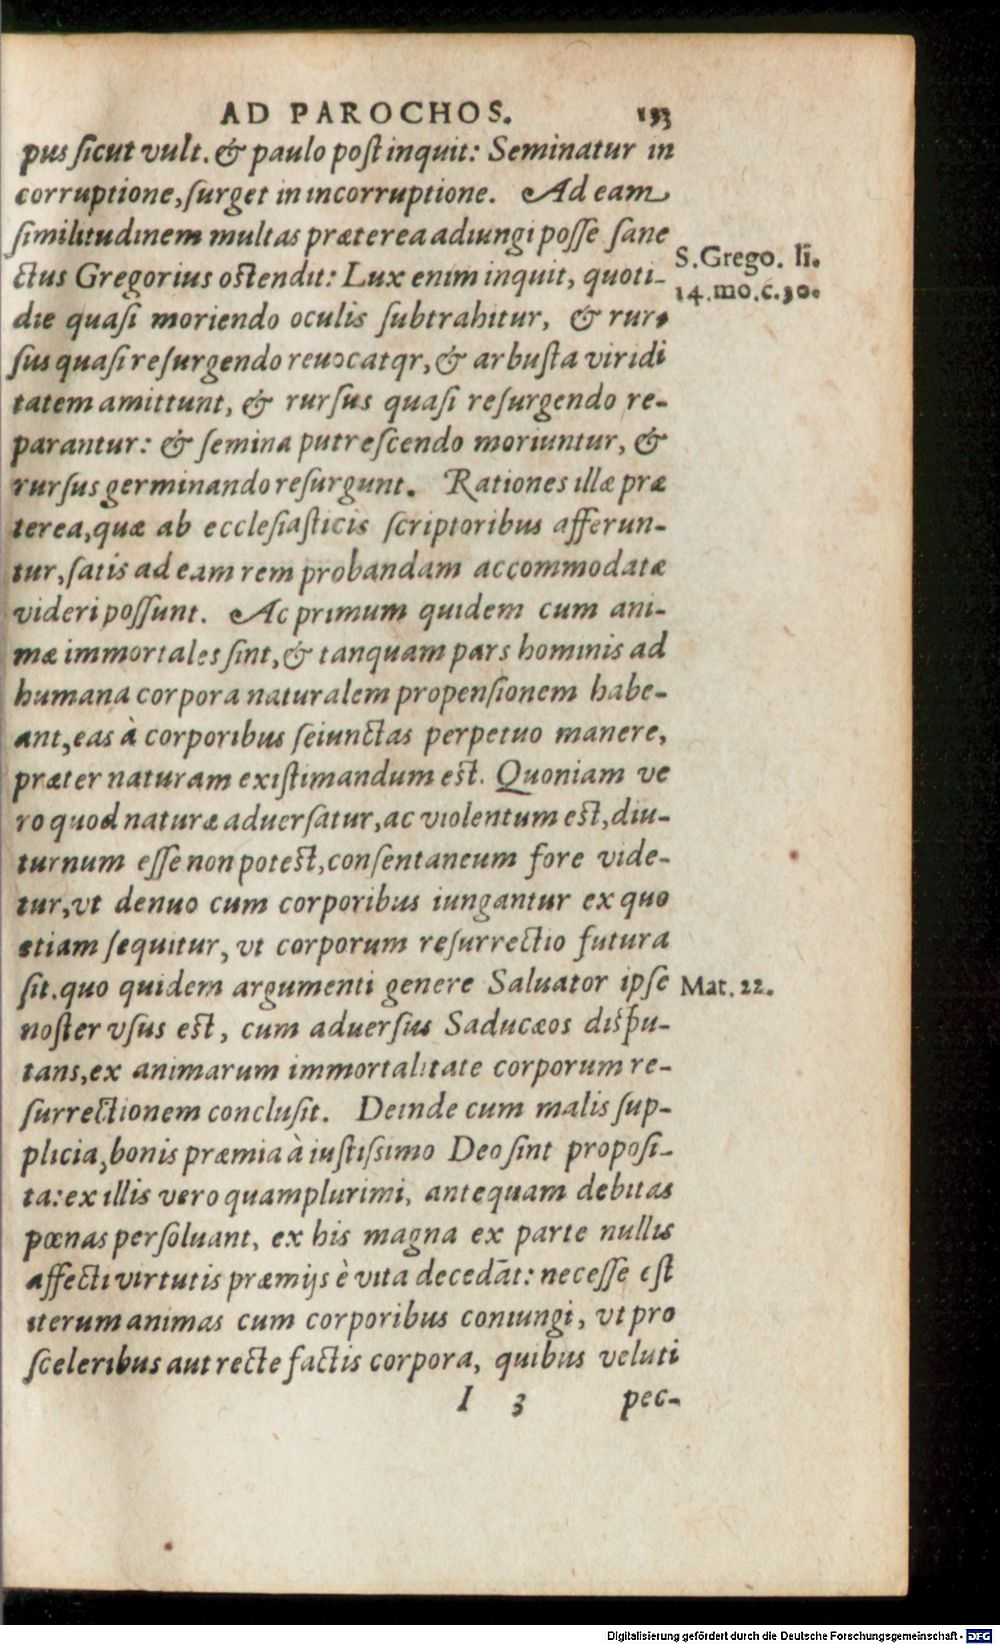 AD PAROCHOS. 133
pus ſicut vult. & paulo poſt inquit: Seminatur in
corruptione, ſurget in incorruptione. Ad eam
ſimilitudinem multas præterea adiungi poſſe ſane
ctus Gregorius oſtendit: Lux enim inquit, quoti-
S.Grego. li.
14.mo.c.30.
die quaſi moriendo oculis ſubtrahitur, & rur
ſus quaſi reſurgendo reuocatqr, & arbuſta viridi
tatem amittunt, & rurſus quaſi reſurgendo re-
parantur: & ſemina putreſcendo moriuntur, &
rurſus germinando reſurgunt. Rationes illæ præ
terea, quæ ab eccleſiaſticis ſcriptoribus afferun-
tur, ſatis ad eam rem probandam accommodatæ
videri poſſunt. Ac primum quidem cum ani-
mæ immortales ſint, & tanquam pars hominis ad
humana corpora naturalem propenſionem habe-
ant, eas à corporibus ſeiunctas perpetuo manere,
præter naturam exiſtimandum eſt. Quoniam ve
ro quod naturæ aduerſatur, ac violentum eſt, diu-
turnum eſſe non poteſt, conſentaneum fore vide-
tur, vt denuo cum corporibus iungantur ex quo
etiam ſequitur, vt corporum reſurrectio futura
ſit. quo quidem argumenti genere Saluator ipſe
Mat. 22.
noſter vſus eſt, cum aduerſus Saducæos diſpu-
tans, ex animarum immortalitate corporum re-
ſurrectionem concluſit. Deinde cum malis ſup-
plicia, bonis præmia à iuſtiſsimo Deo ſint propoſi-
ta: ex illis vero quamplurimi, antequam debitas
pœnas perſoluant, ex his magna ex parte nullis
affecti virtutis præmijs è vita decedāt: neceſſe eſt
iterum animas cum corporibus coniungi, vt pro
ſceleribus aut recte factis corpora, quibus veluti
I 3 pec-
Digitalisierung gefördert durch die Deutsche Forschungsgemeinschaft - DFG